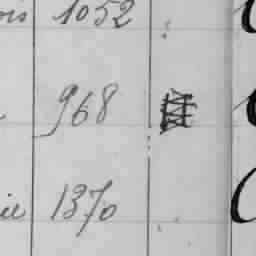 ois 1052
968
ie 1370